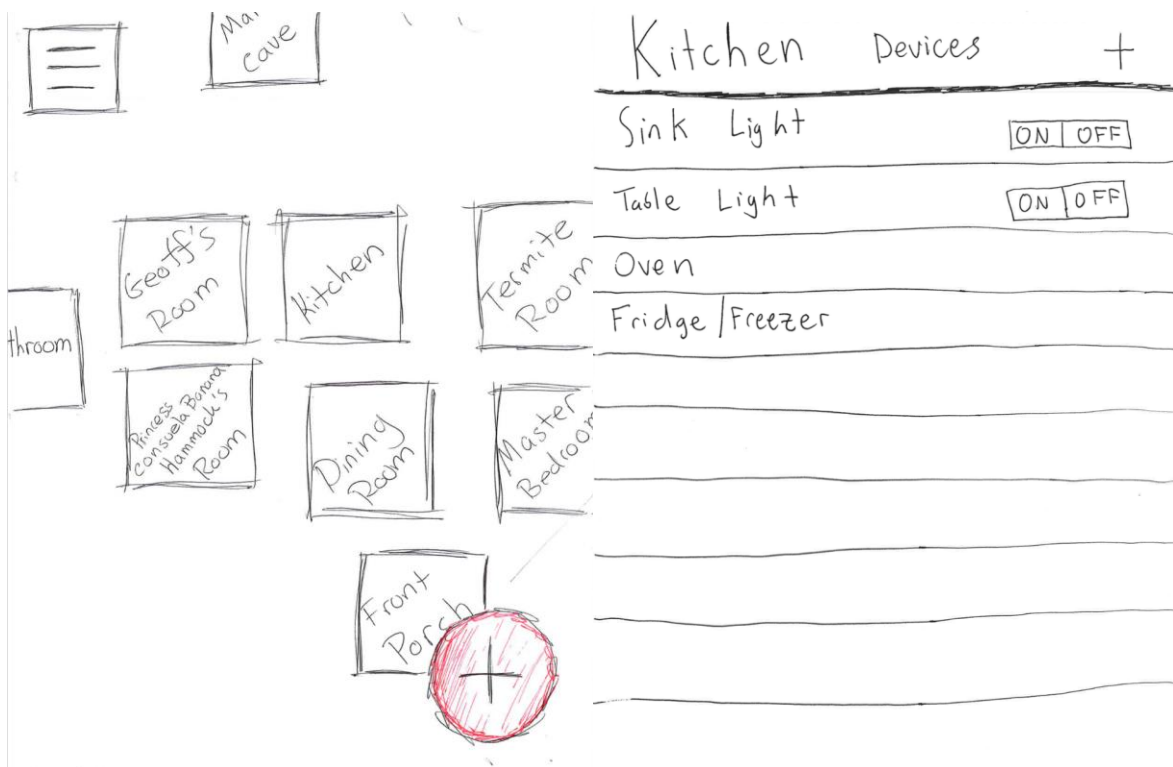 Ma
cave
Geoff's
Room
Kitchen
Termite
Room
throom
Princess
Consuela Banana
Hammock's
Room
Dining
Room
Master
Bedroom
Front
Porch
+
Kitchen Devices +
Sink Light ON OFF
Table Light ON OFF
Oven
Fridge/Freezer